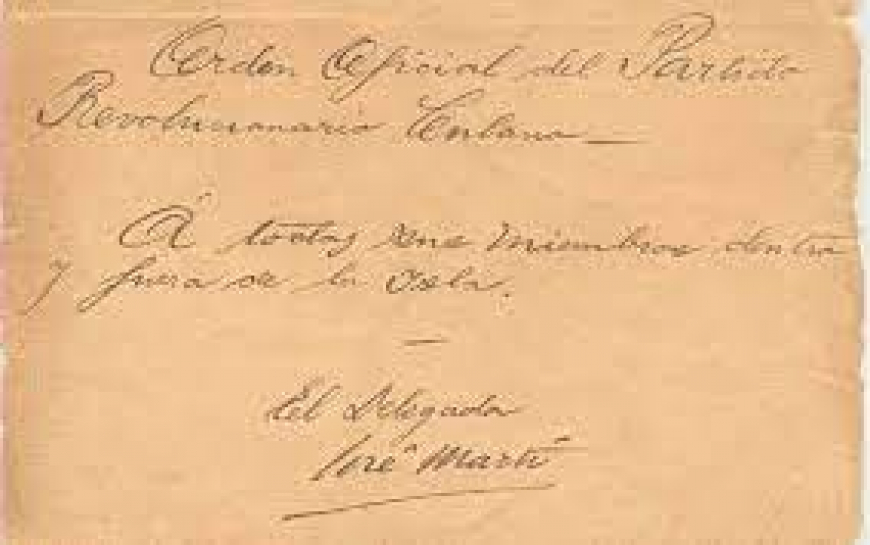 Orden Oficial del Partido
Revolucionario Cubano —
Á todos sus miembros dentro
y fuera de la Isla.
—
El Delegado
José Martí